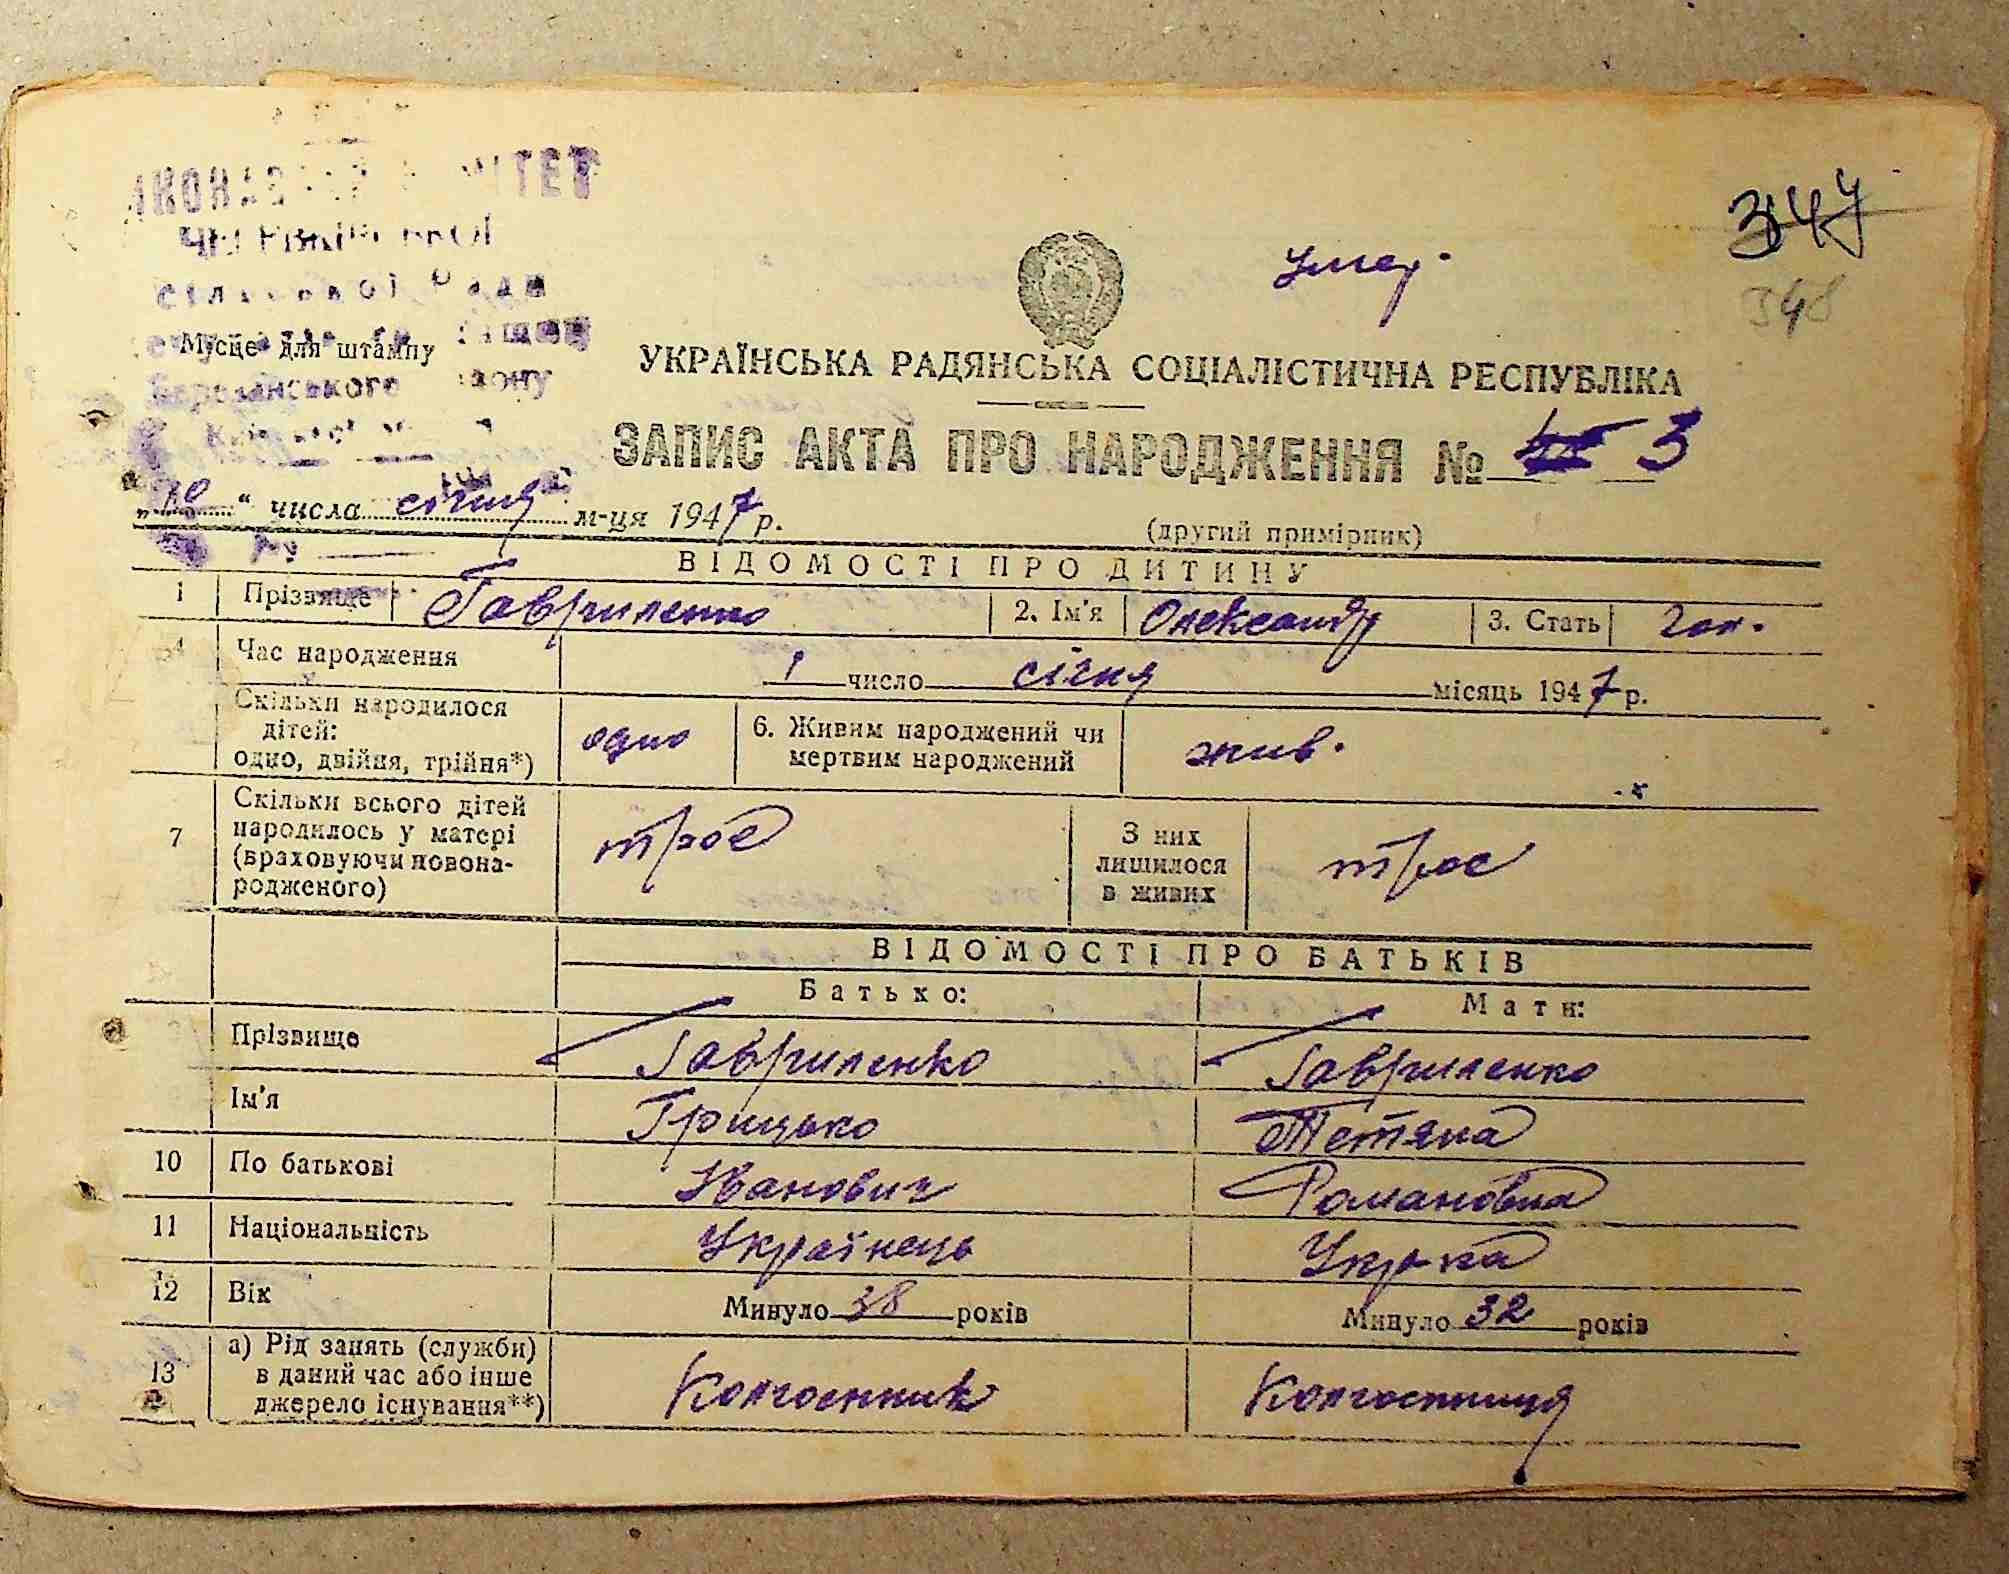 сільської Ради
Місце для штампу
Березанського району
347
348
Умер.
УКРАЇНСЬКА РАДЯНСЬКА СОЦІАЛІСТИЧНА РЕСПУБЛІКА
ЗАПИС АКТА ПРО НАРОДЖЕННЯ № 3
„10“ числа січня м-ця 1947 р.
(другий примірник)
ВІДОМОСТІ ПРО ДИТИНУ
1 Прізвище Гавриленко 2. Ім'я Олександр 3. Стать чол.
4 Час народження 1 число січня місяць 1947 р.
Скільки народилося
дітей:
одно, двійня, трійня*)
одно
6. Живим народжений чи
мертвим народжений
жив.
7
Скільки всього дітей
народилось у матері
(враховуючи новона-
родженого)
троє
З них
лишилося
в живих
троє
ВІДОМОСТІ ПРО БАТЬКІВ
Батько: Мати:
Прізвище Гавриленко Гавриленко
Ім'я Грицько Тетяна
10 По батькові Іванович Романовна
11 Національність Українець Укр-ка
12 Вік Минуло 38 років Минуло 32 років
13
а) Рід занять (служби)
в даний час або інше
джерело існування**)
Колгоспник Колгоспниця